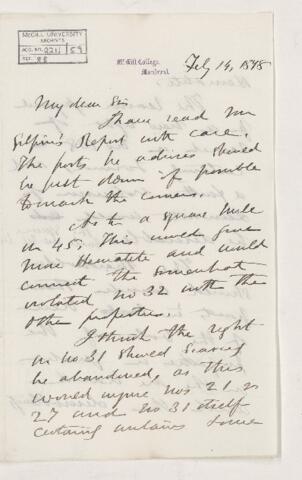 McGILL UNIVERSITY
ARCHIVES
ACC. NO. 2211/59
REF. 88
McGill College,
Montreal.
July 14, 1875
My dear Sir
I have read Mr
Gilpin's Report with care.
The posts he advises should
be put down if possible
to mark the corners.
As to a square mile
in 45, This would give
more Hematite and would
connect the somewhat
isolated no 32 with the
other properties.
I think the right
in no 31 should scarcely
be abandoned, as this
would injure nos 21 &
27 and no 31 itself
certainly contains some